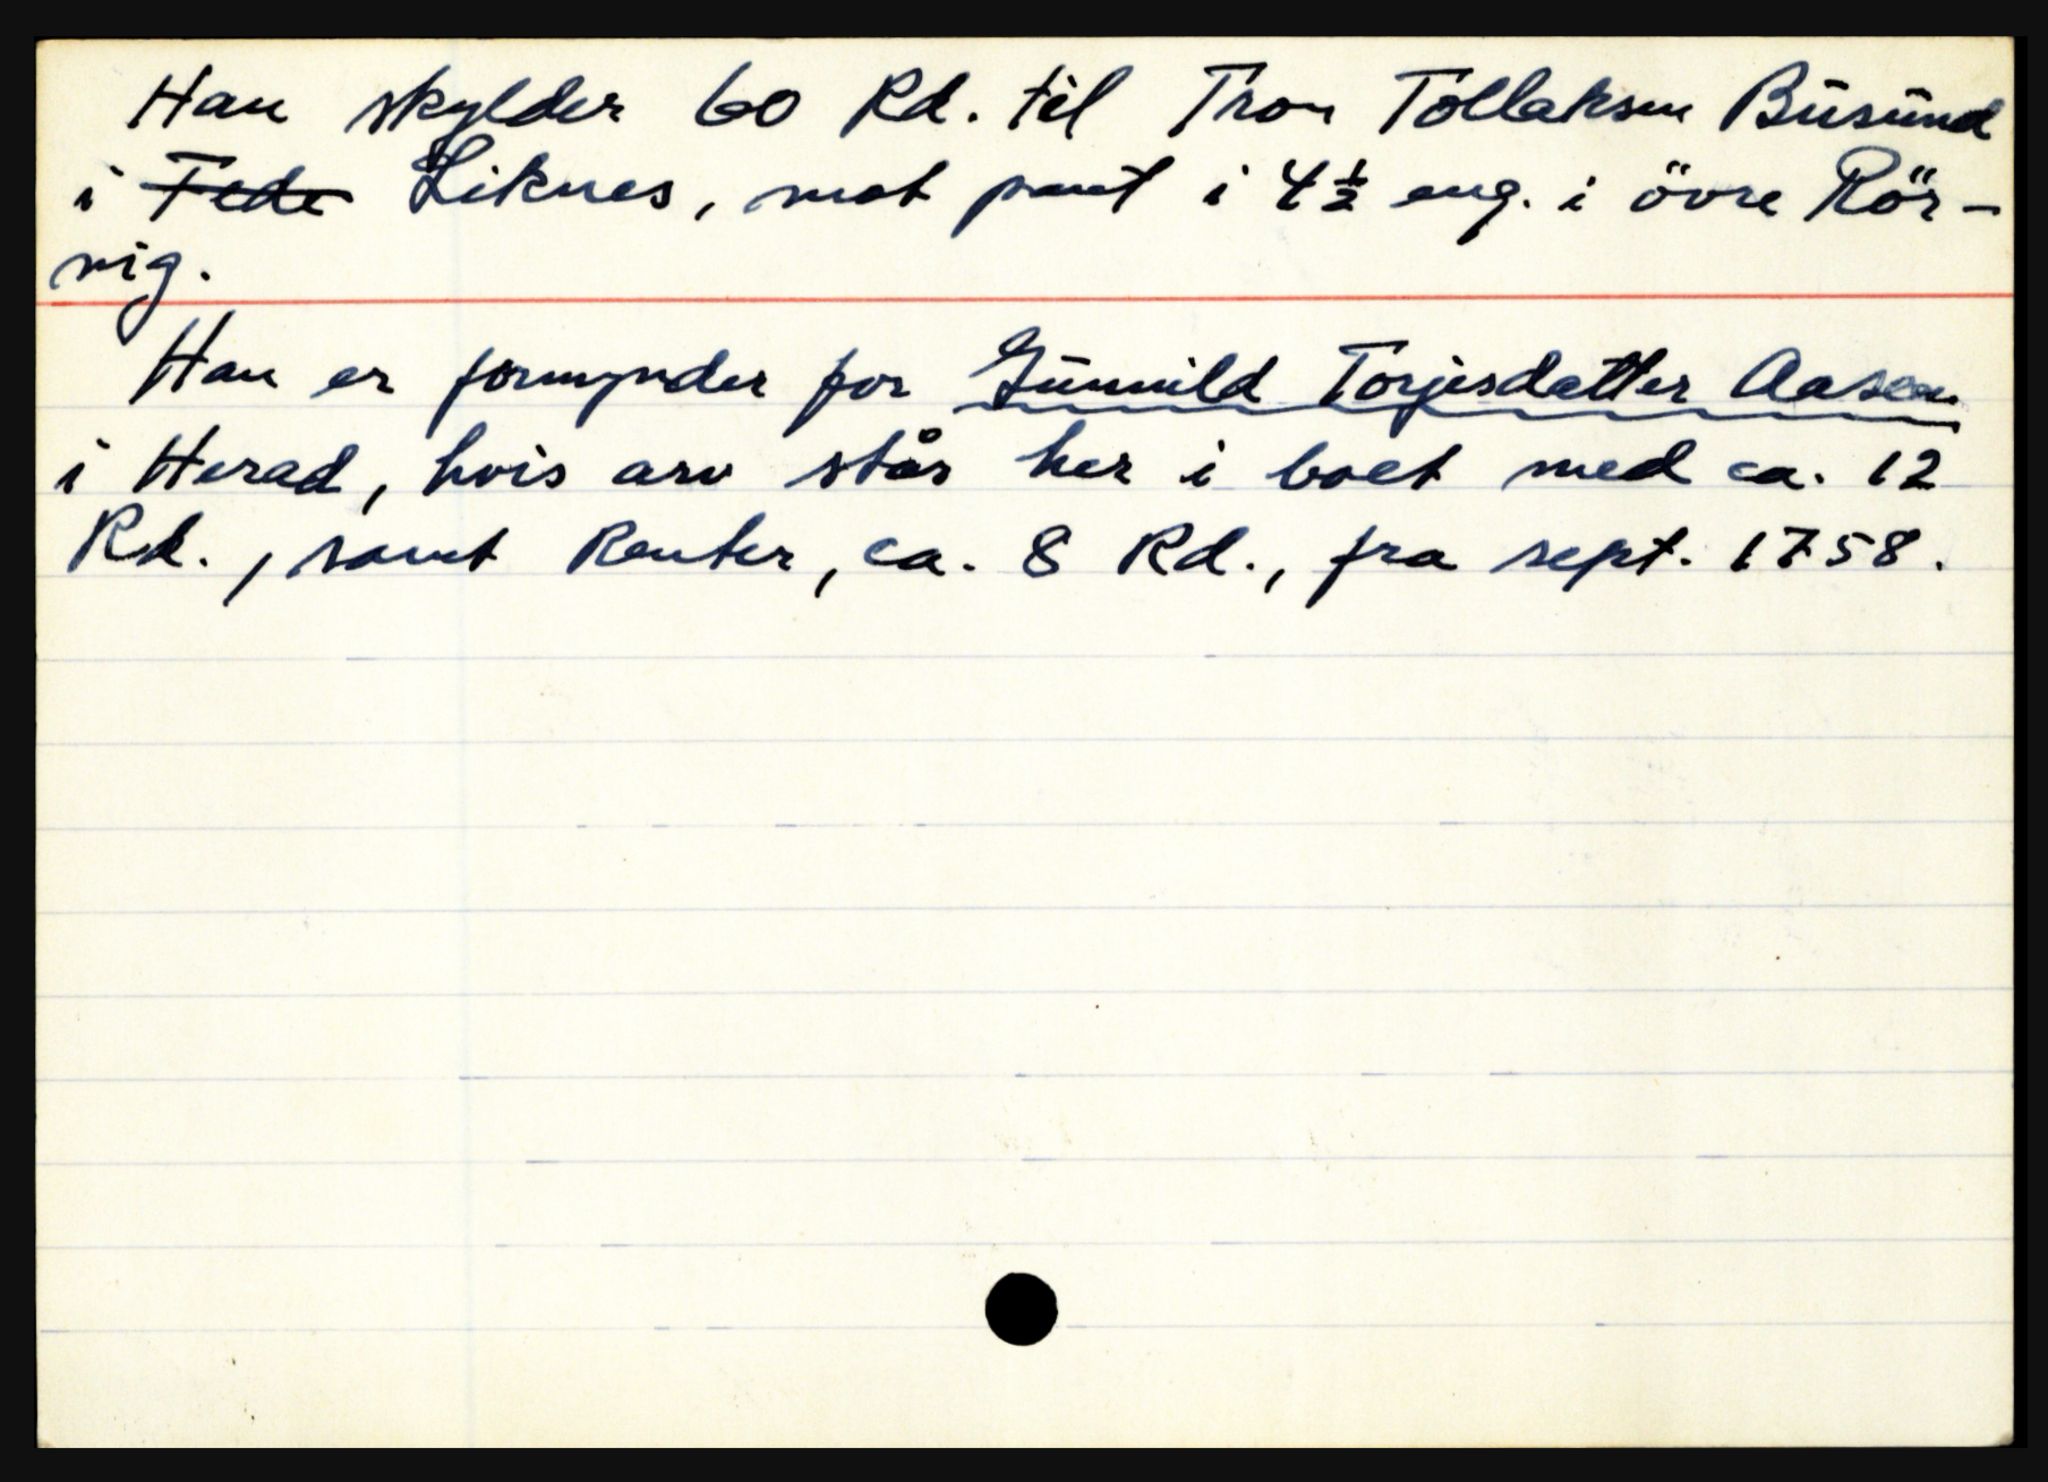 Han skylder 60 Rd. til Tron Tollaksen Büsünd
i ~~Fede~~ Liknes, mot pant i 4½ eng. i övre Rör-
vig.
Han er formynder for Günnild Torjesdatter Aasen
i Herad, hvis arv står her i boet med ca. 12
Rd., samt Renter, ca. 8 Rd., fra sept. 1758.